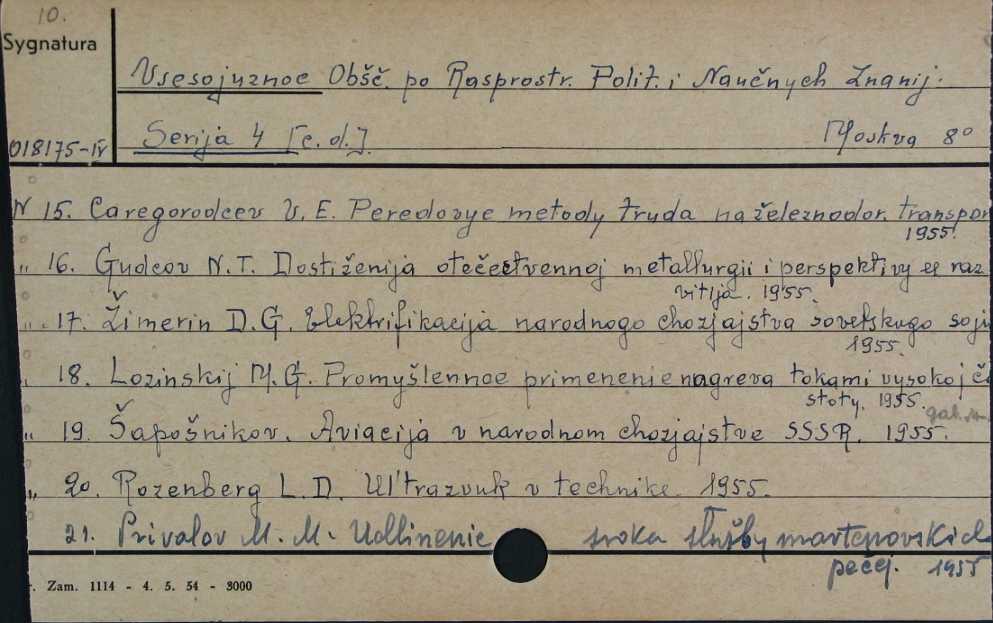 10.
Sygnatura
Vsesojuznoe Obšč. po Rasprostr. Polit. i Naučnych Znanij.
018175-IV
Serija 4 [c.d.] Moskva 8°
N 15. Caregorodcev V. E. Peredovye metody truda na železnodor. transpor
1955.
" 16. Gudcov N.T. Dostiženija otečestvennoj metallurgii i perspektivy ee raz
vitija. 1955.
" 17. Žimerin D.G. Elektrifikacija narodnogo chozjajstva sovetskogo soju
1955.
" 18. Lozinskij M.G. Promyšlennoe primenenie nagreva tokami vysokoj ča
stoty. 1955.
" 19. Šapošnikov. Aviacija v narodnom chozjajstve SSSR. 1955.
" 20. Rozenberg L.D. Ul'trazvuk v technike. 1955.
21. Privalov M. M. Udlinenie sroka služby martenovskich
pečej. 1955
Zam. 1114 - 4. 5. 54 - 3000